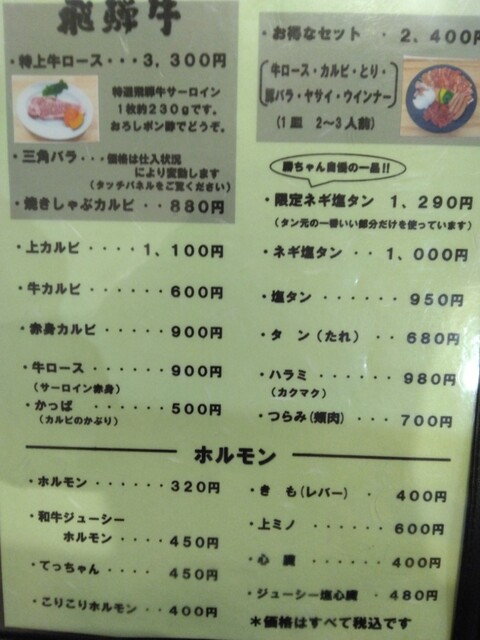 飛騨牛
・特上牛ロース・・3,300円
特選飛騨牛サーロイン
1枚約230gです。
おろしポン酢でどうぞ。
・三角バラ・・・価格は仕入状況
により変動します
(タッチパネルをご覧ください)
・焼きしゃぶカルビ・・880円
・上カルビ・・・・1,100円
・牛カルビ・・・・・・600円
・赤身カルビ・・・・・900円
・牛ロース・・・・・・900円
(サーロイン赤身)
・かっぱ・・・・・・500円
(カルビのかぶり)
・お得なセット・2,400円
牛ロース・カルビ・とり・
豚バラ・ヤサイ・ウインナー
(1皿 2~3人前)
勝ちゃん自慢の一品!!
・限定ネギ塩タン 1,290円
(タン元の一番いい部分だけを使っています)
・ネギ塩タン・・1,000円
・塩タン・・・・・・950円
・タン(たれ)・・680円
・ハラミ・・・・・・980円
(カクマク)
・つらみ(頬肉)・・・700円
ホルモン
・ホルモン・・・・・・320円
・和牛ジューシー
ホルモン・・・・450円
・てっちゃん・・・・450円
・こりこりホルモン・・400円
・きも(レバー)・400円
・上ミノ・・・・・・600円
・心臓・・・・・・400円
・ジューシー塩心臓・480円
*価格はすべて税込です